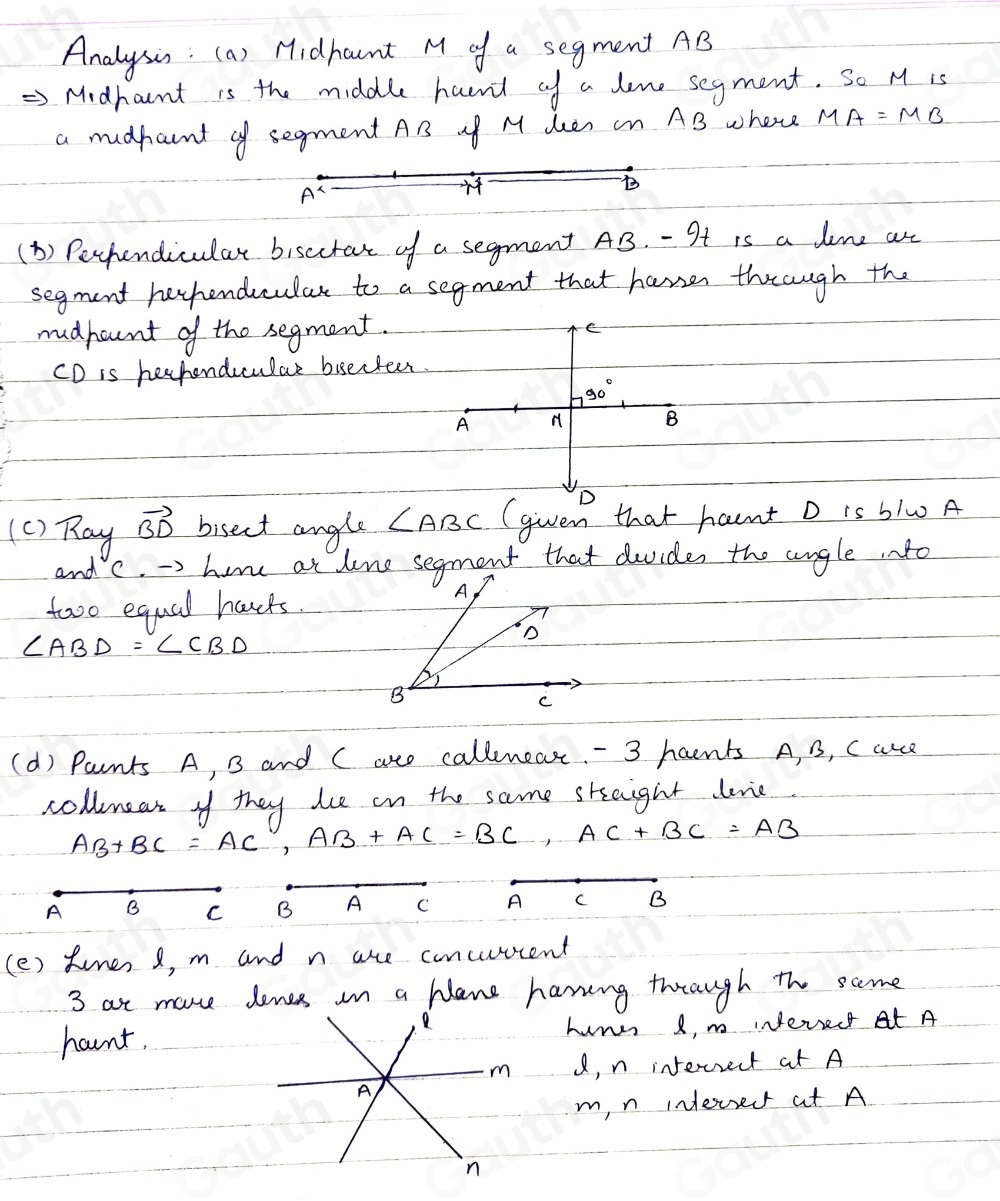 Analysis : (a) Midpoint M of a segment AB
⇒ Midpoint is the middle point of a line segment. So M is
a midpoint of segment AB if M lies on AB where MA = MB
A M B
(b) Perpendicular bisector of a segment AB. - It is a line or
segment perpendicular to a segment that passes through the
midpoint of the segment.
CD is perpendicular bisector.
C
90°
A M B
D
(c) Ray BD→ bisect angle ∠ABC (given that point D is b/w A
and C. → Line or line segment that devides the angle into
two equal parts.
∠ABD = ∠CBD
A
D
B C
(d) Points A, B and C are collinear. - 3 points A, B, C are
collinear if they lie on the same straight line.
AB+BC = AC, AB + AC = BC, AC + BC = AB
A B C B A C A C B
(e) Lines l, m and n are concurrent
3 or more lines in a plane passing through the same
point.
l
m
A
n
Lines l, m intersect at A
l, n intersect at A
m, n intersect at A
Gauth